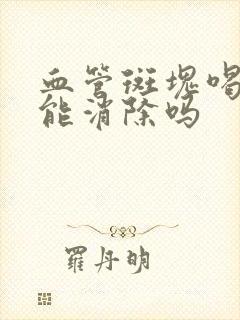 血管斑塊喝
能消除嗎
羅丹明